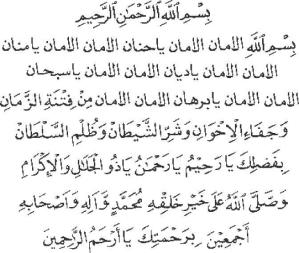 بِسْمِ اللهِ الرَّحْمٰنِ الرَّحِيْمِ
بِسْمِ اللهِ الامان الامان ياحنان الامان الامان يامنان
الامان الامان ياديان الامان الامان ياسبحان
الامان الامان يابرهان الامان الامان مِنْ فِتْنَةِ الزَّمَانِ
وَجَفَاءِ الْاِخْوَانِ وَشَرِّ الشَّيْطَانِ وَظُلْمِ السُّلْطَانِ
بِفَضْلِكَ يَا رَحِيْمُ يَا رَحْمٰنُ يَا ذُو الْجَلَالِ وَالْاِكْرَامِ
وَصَلَّى اللهُ عَلٰى خَيْرِ خَلْقِهٖ مُحَمَّدٍ وَّاٰلِهٖ وَاَصْحَابِهٖ
اَجْمَعِيْنَ بِرَحْمَتِكَ يَا اَرْحَمَ الرَّاحِمِيْنَ